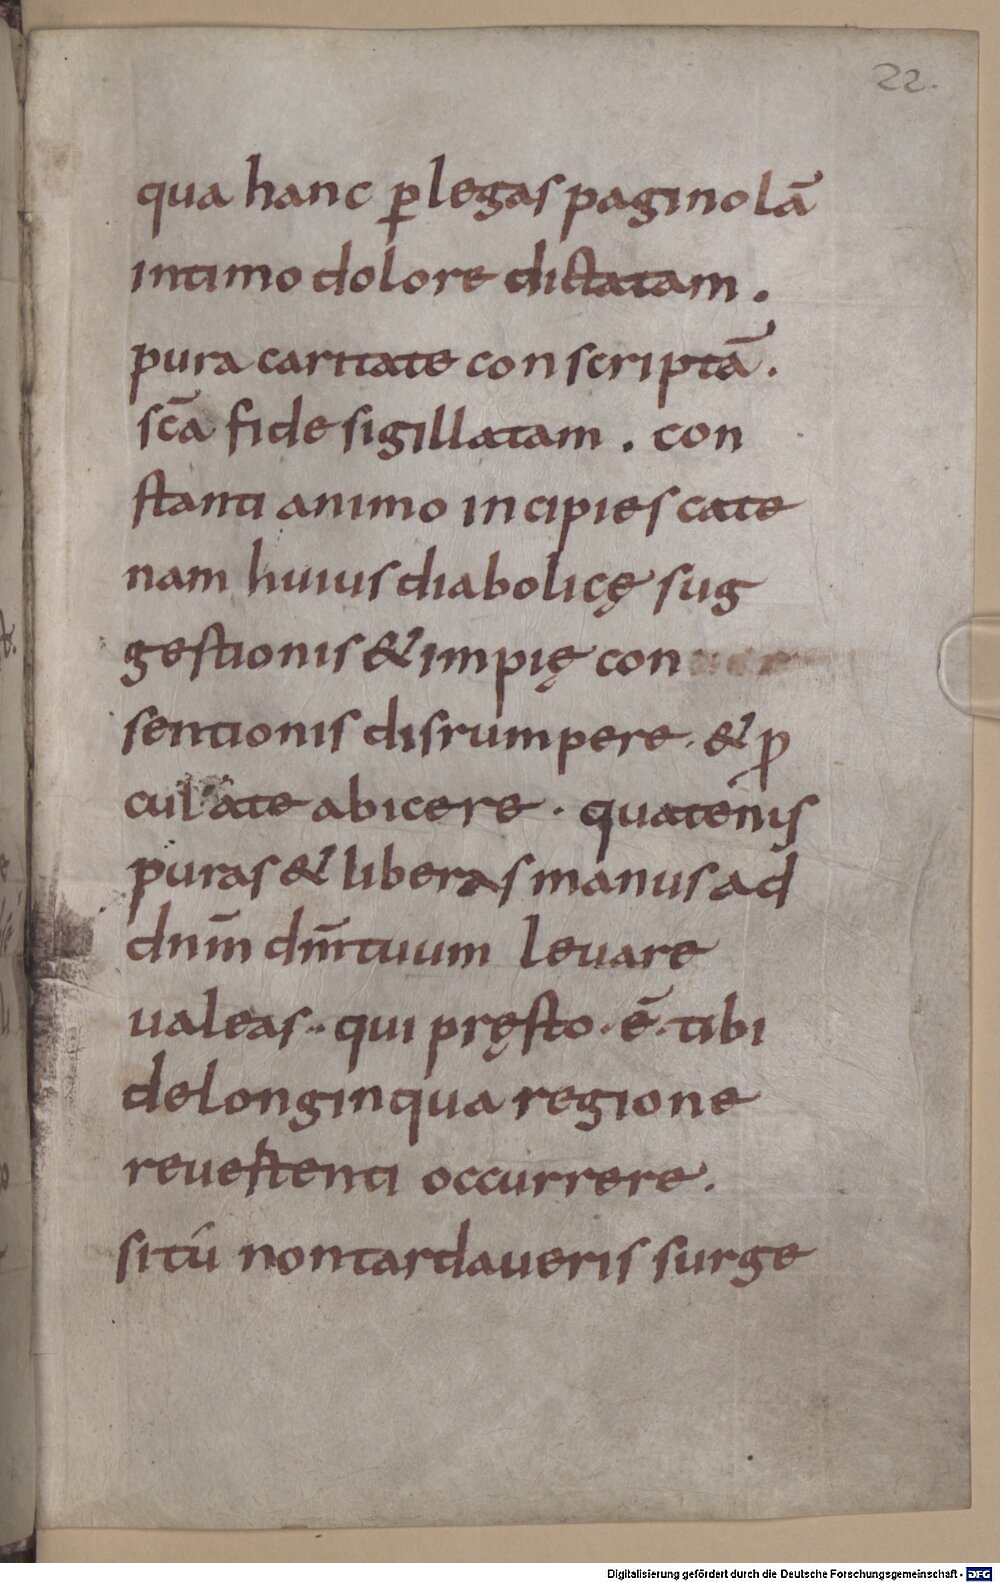 22.
qua hanc ꝑlegas paginolā
intimo dolore dictatam .
pura caritate conscriptā .
sc̄a fide sigillatam . con
stanti animo incipies cate
nam huius diabolicę sug
gestionis & impię con
sentionis disrumpere · & ꝓ
cul a te abicere · quatenis
puras & liberas manus ad
dnm̄ dm̄ tuum leuare
ualeas · qui pręsto · ē · tibi
de longinqua regione
reuestenti occurrere .
si tu non tardaueris surge
Digitalisierung gefördert durch die Deutsche Forschungsgemeinschaft - DFG